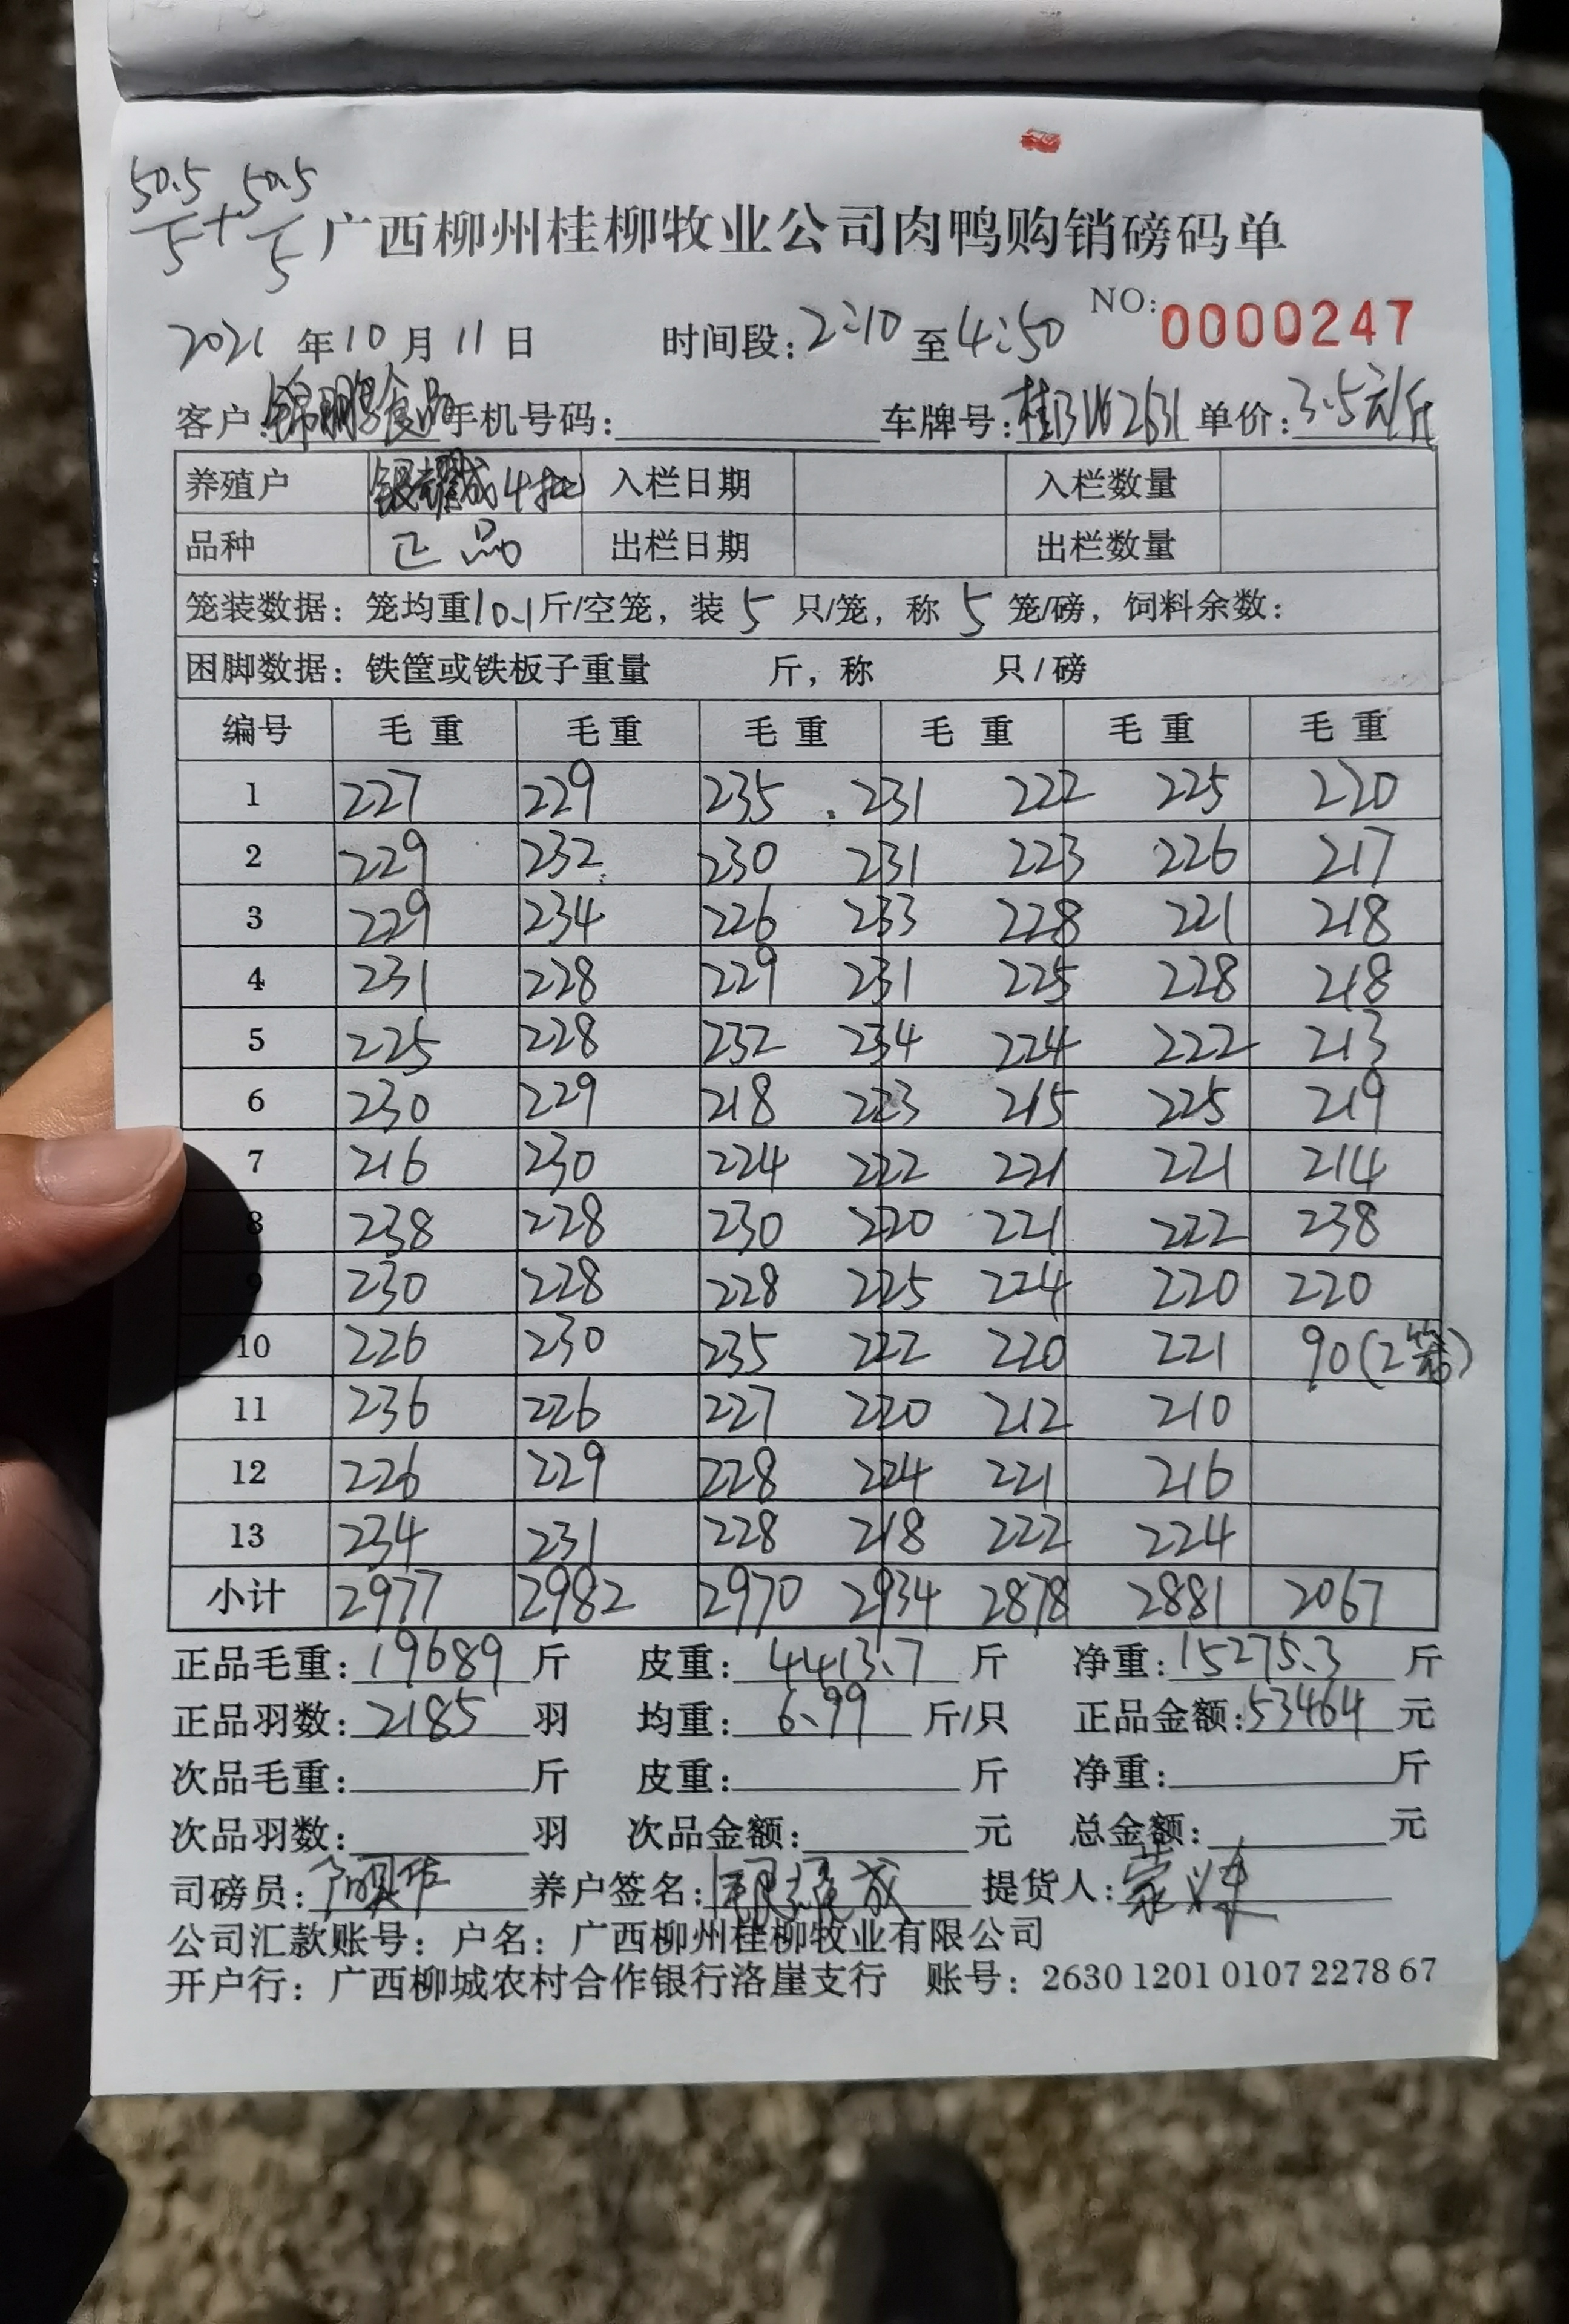 50.5/5+50.5/5
广西柳州桂柳牧业公司肉鸭购销磅码单
2021年10月11日 时间段:2:10至4:50 NO:0000247
客户:锦鹏食品 手机号码: 车牌号:桂B 2631 单价:3.5元/斤
养殖户 银耀成4批 入栏日期 入栏数量
品种 正品 出栏日期 出栏数量
笼装数据:笼均重10.1斤/空笼,装5只/笼,称5笼/磅,饲料余数:
困脚数据:铁筐或铁板子重量 斤,称 只/磅
编号 毛重 毛重 毛重 毛重 毛重 毛重
1 227 229 235 231 222 225 220
2 229 232 230 231 223 226 217
3 229 234 226 233 228 221 218
4 231 228 229 231 225 228 218
5 225 228 232 234 224 222 213
6 230 229 218 223 215 225 219
7 216 230 224 222 221 221 214
8 238 228 230 220 221 222 238
9 230 228 228 225 224 220 220
10 226 230 235 222 220 221 90(2笼)
11 236 226 227 220 212 210
12 226 229 228 224 221 216
13 234 231 228 218 222 224
小计 2977 2982 2970 2934 2878 2881 2067
正品毛重:19689斤 皮重:4413.7斤 净重:15275.3斤
正品羽数:2185羽 均重:6.99斤/只 正品金额:53464元
次品毛重: 斤 皮重: 斤 净重: 斤
次品羽数: 羽 次品金额: 元 总金额: 元
司磅员: 养户签名:银耀成 提货人:
公司汇款账号:户名:广西柳州桂柳牧业有限公司
开户行:广西柳城农村合作银行洛崖支行 账号:2630 1201 0107 2278 67